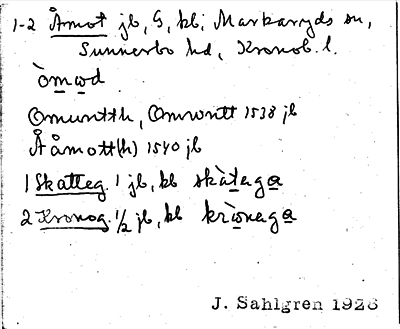 1-2 Åmot jb, G, kb; Markaryds sn,
Sunnerbo hd, Kronob. l.
òmωd
Omuntth, Omwntt 1538 jb
Å åmott(h) 1540 jb
1 Skatteg. 1 jb, kb skàtaga
2 Kronog. 1/2 jb, kb krωnaga
J. Sahlgren 1926